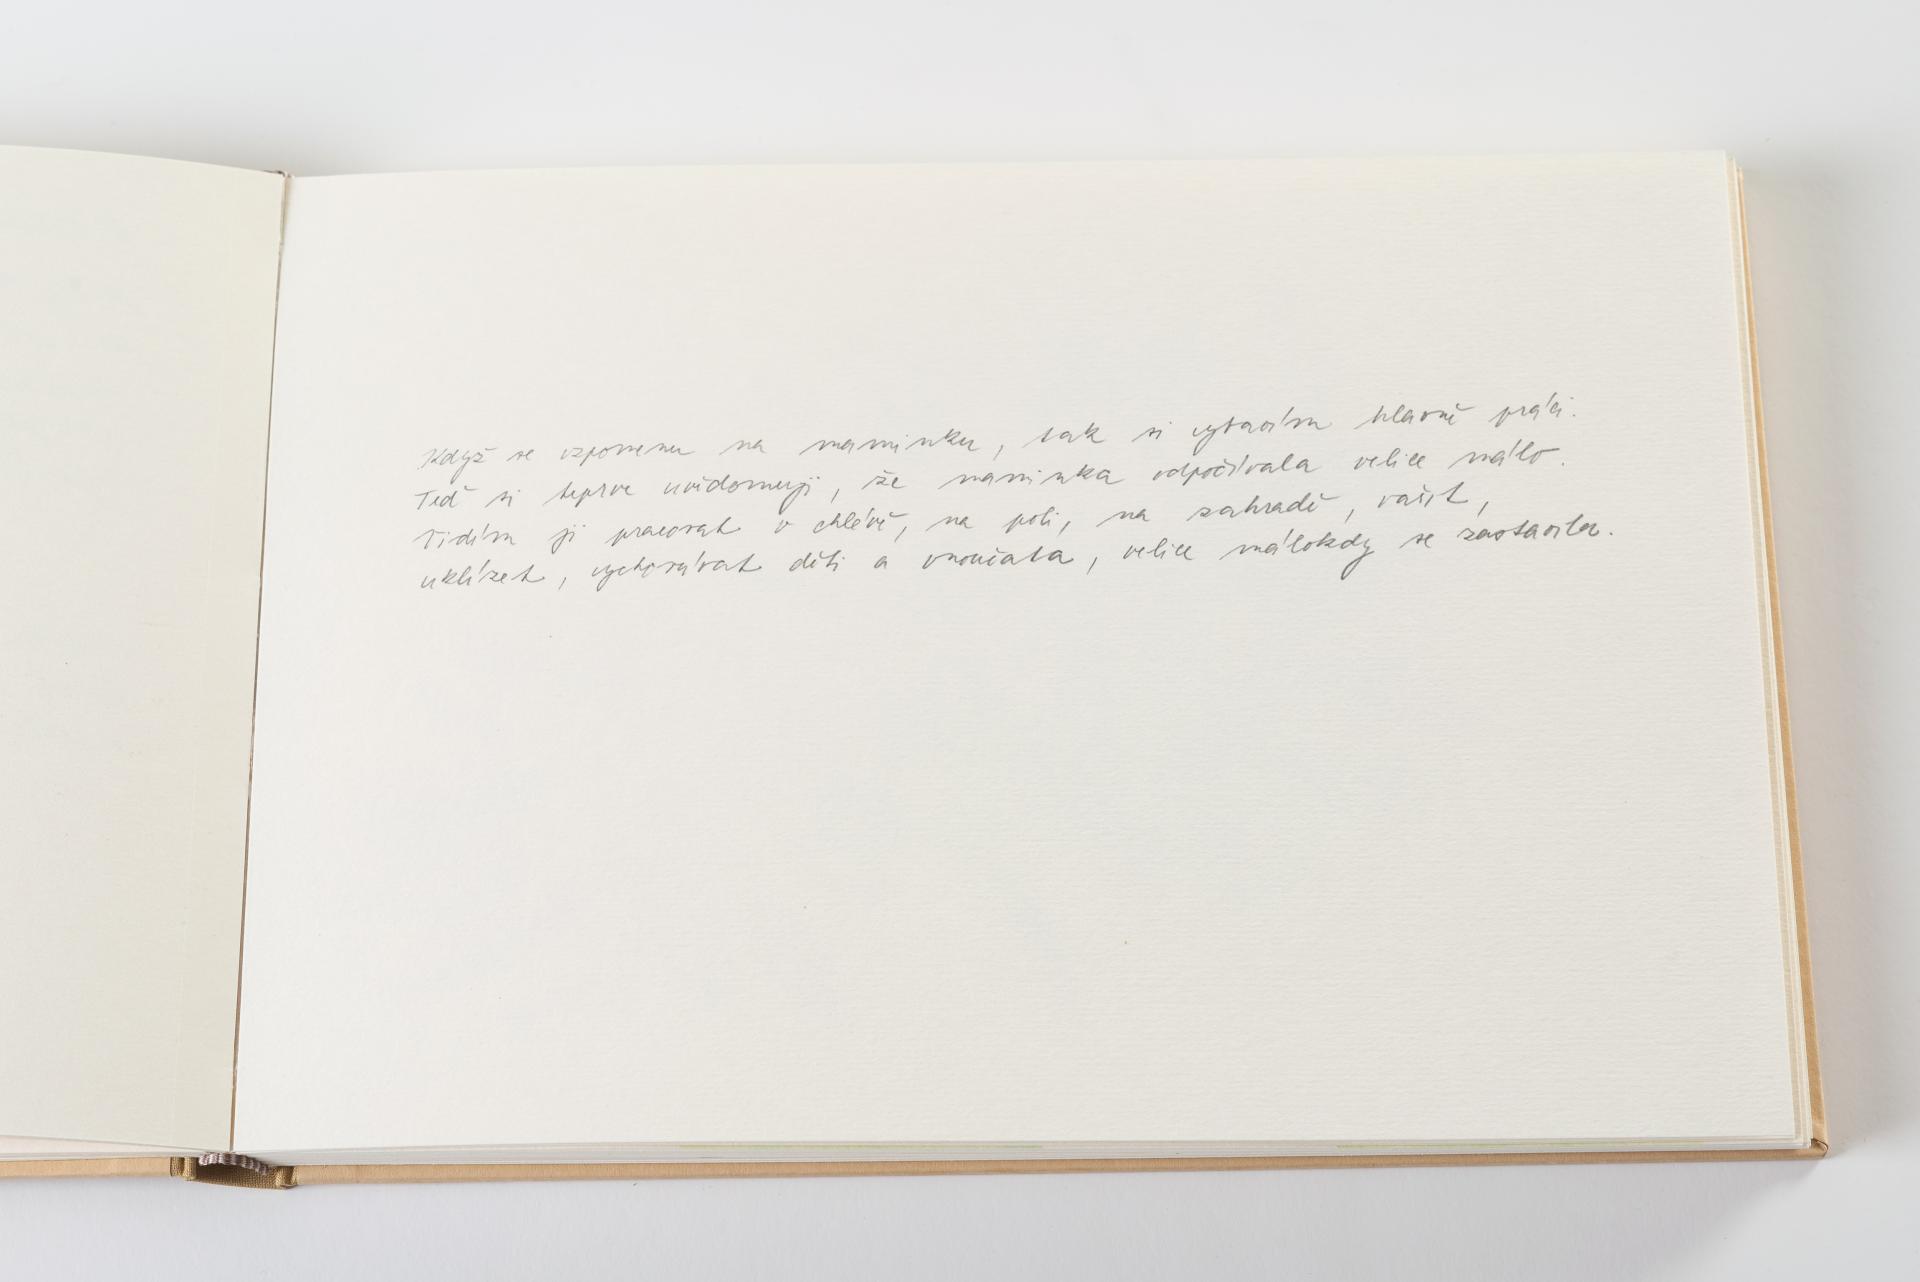 Když se vzpomenu na maminku, tak si vybavím hlavně práci.
Teď si teprve uvědomuji, že maminka odpočívala velice málo.
Vidím ji pracovat v chlévě, na poli, na zahradě, vařit,
uklízet, vychovávat děti a vnoučata, velice málokdy se zastavila.